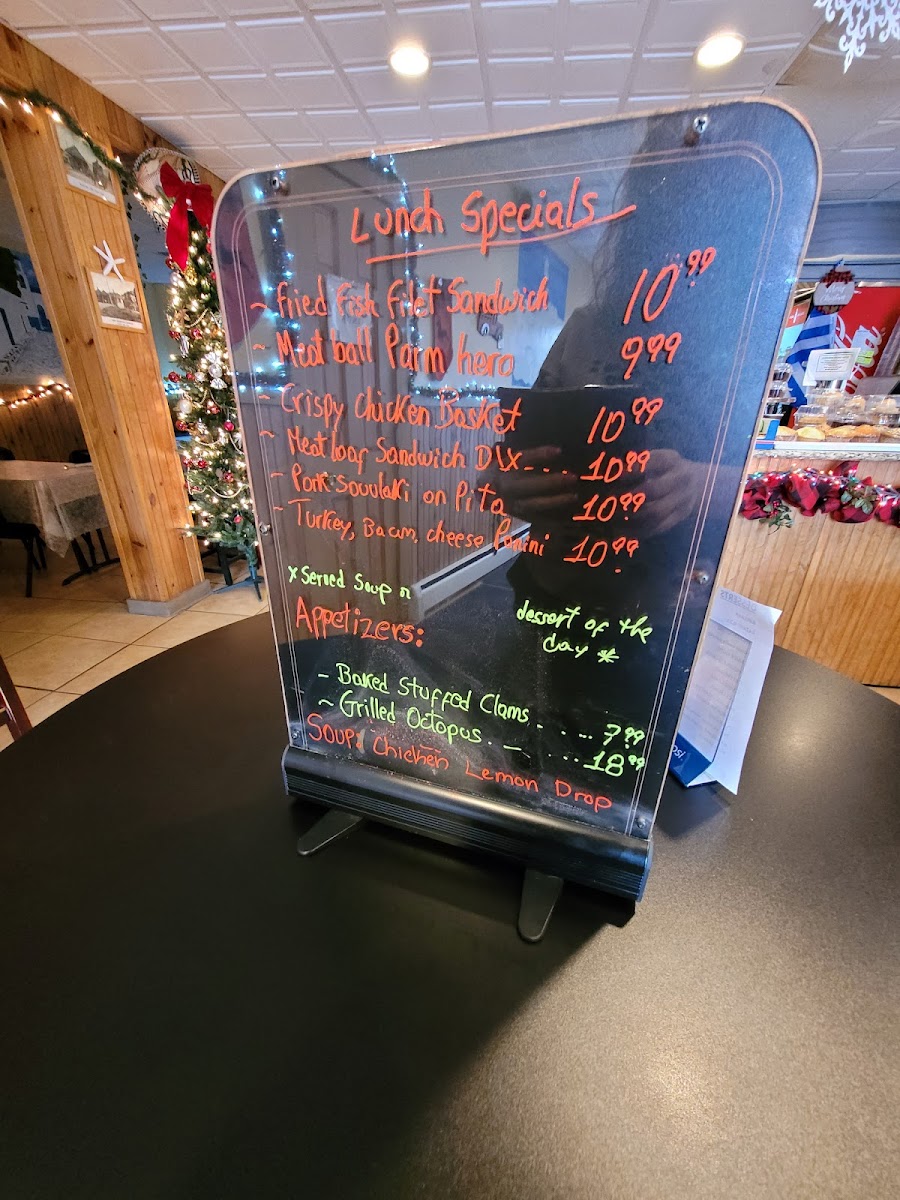 Lunch Specials
~ Fried Fish Filet Sandwich 10.99
~ Meat ball Parm hero 9.99
~ Crispy Chicken Basket 10.99
~ Meat loaf Sandwich DLX... 10.99
- Pork Souvlaki on Pita 10.99
~ Turkey, Bacon, cheese Panini 10.99
x Served Soup or dessert of the day *
Appetizers:
- Baked Stuffed Clams . . . . . 7.99
~ Grilled Octopus . . . . . 18.99
Soup: Chicken Lemon Drop